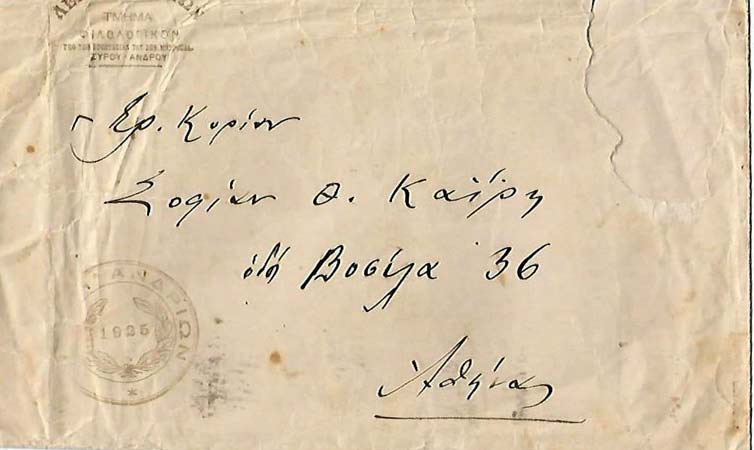 ΤΜΗΜΑ
ΦΙΛΟΛΟΓΙΚΟΝ
ΣΥΡΟΥ-ΑΝΔΡΟΥ
Ερ. Κυρίαν
Σοφίαν Θ. Καΐρη
ὁδὸς 36
Ἀθήνας
ΑΝΔΡΙΩΝ
1925